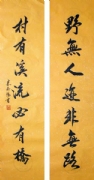 野無人迹非無路
村有溪流必有橋